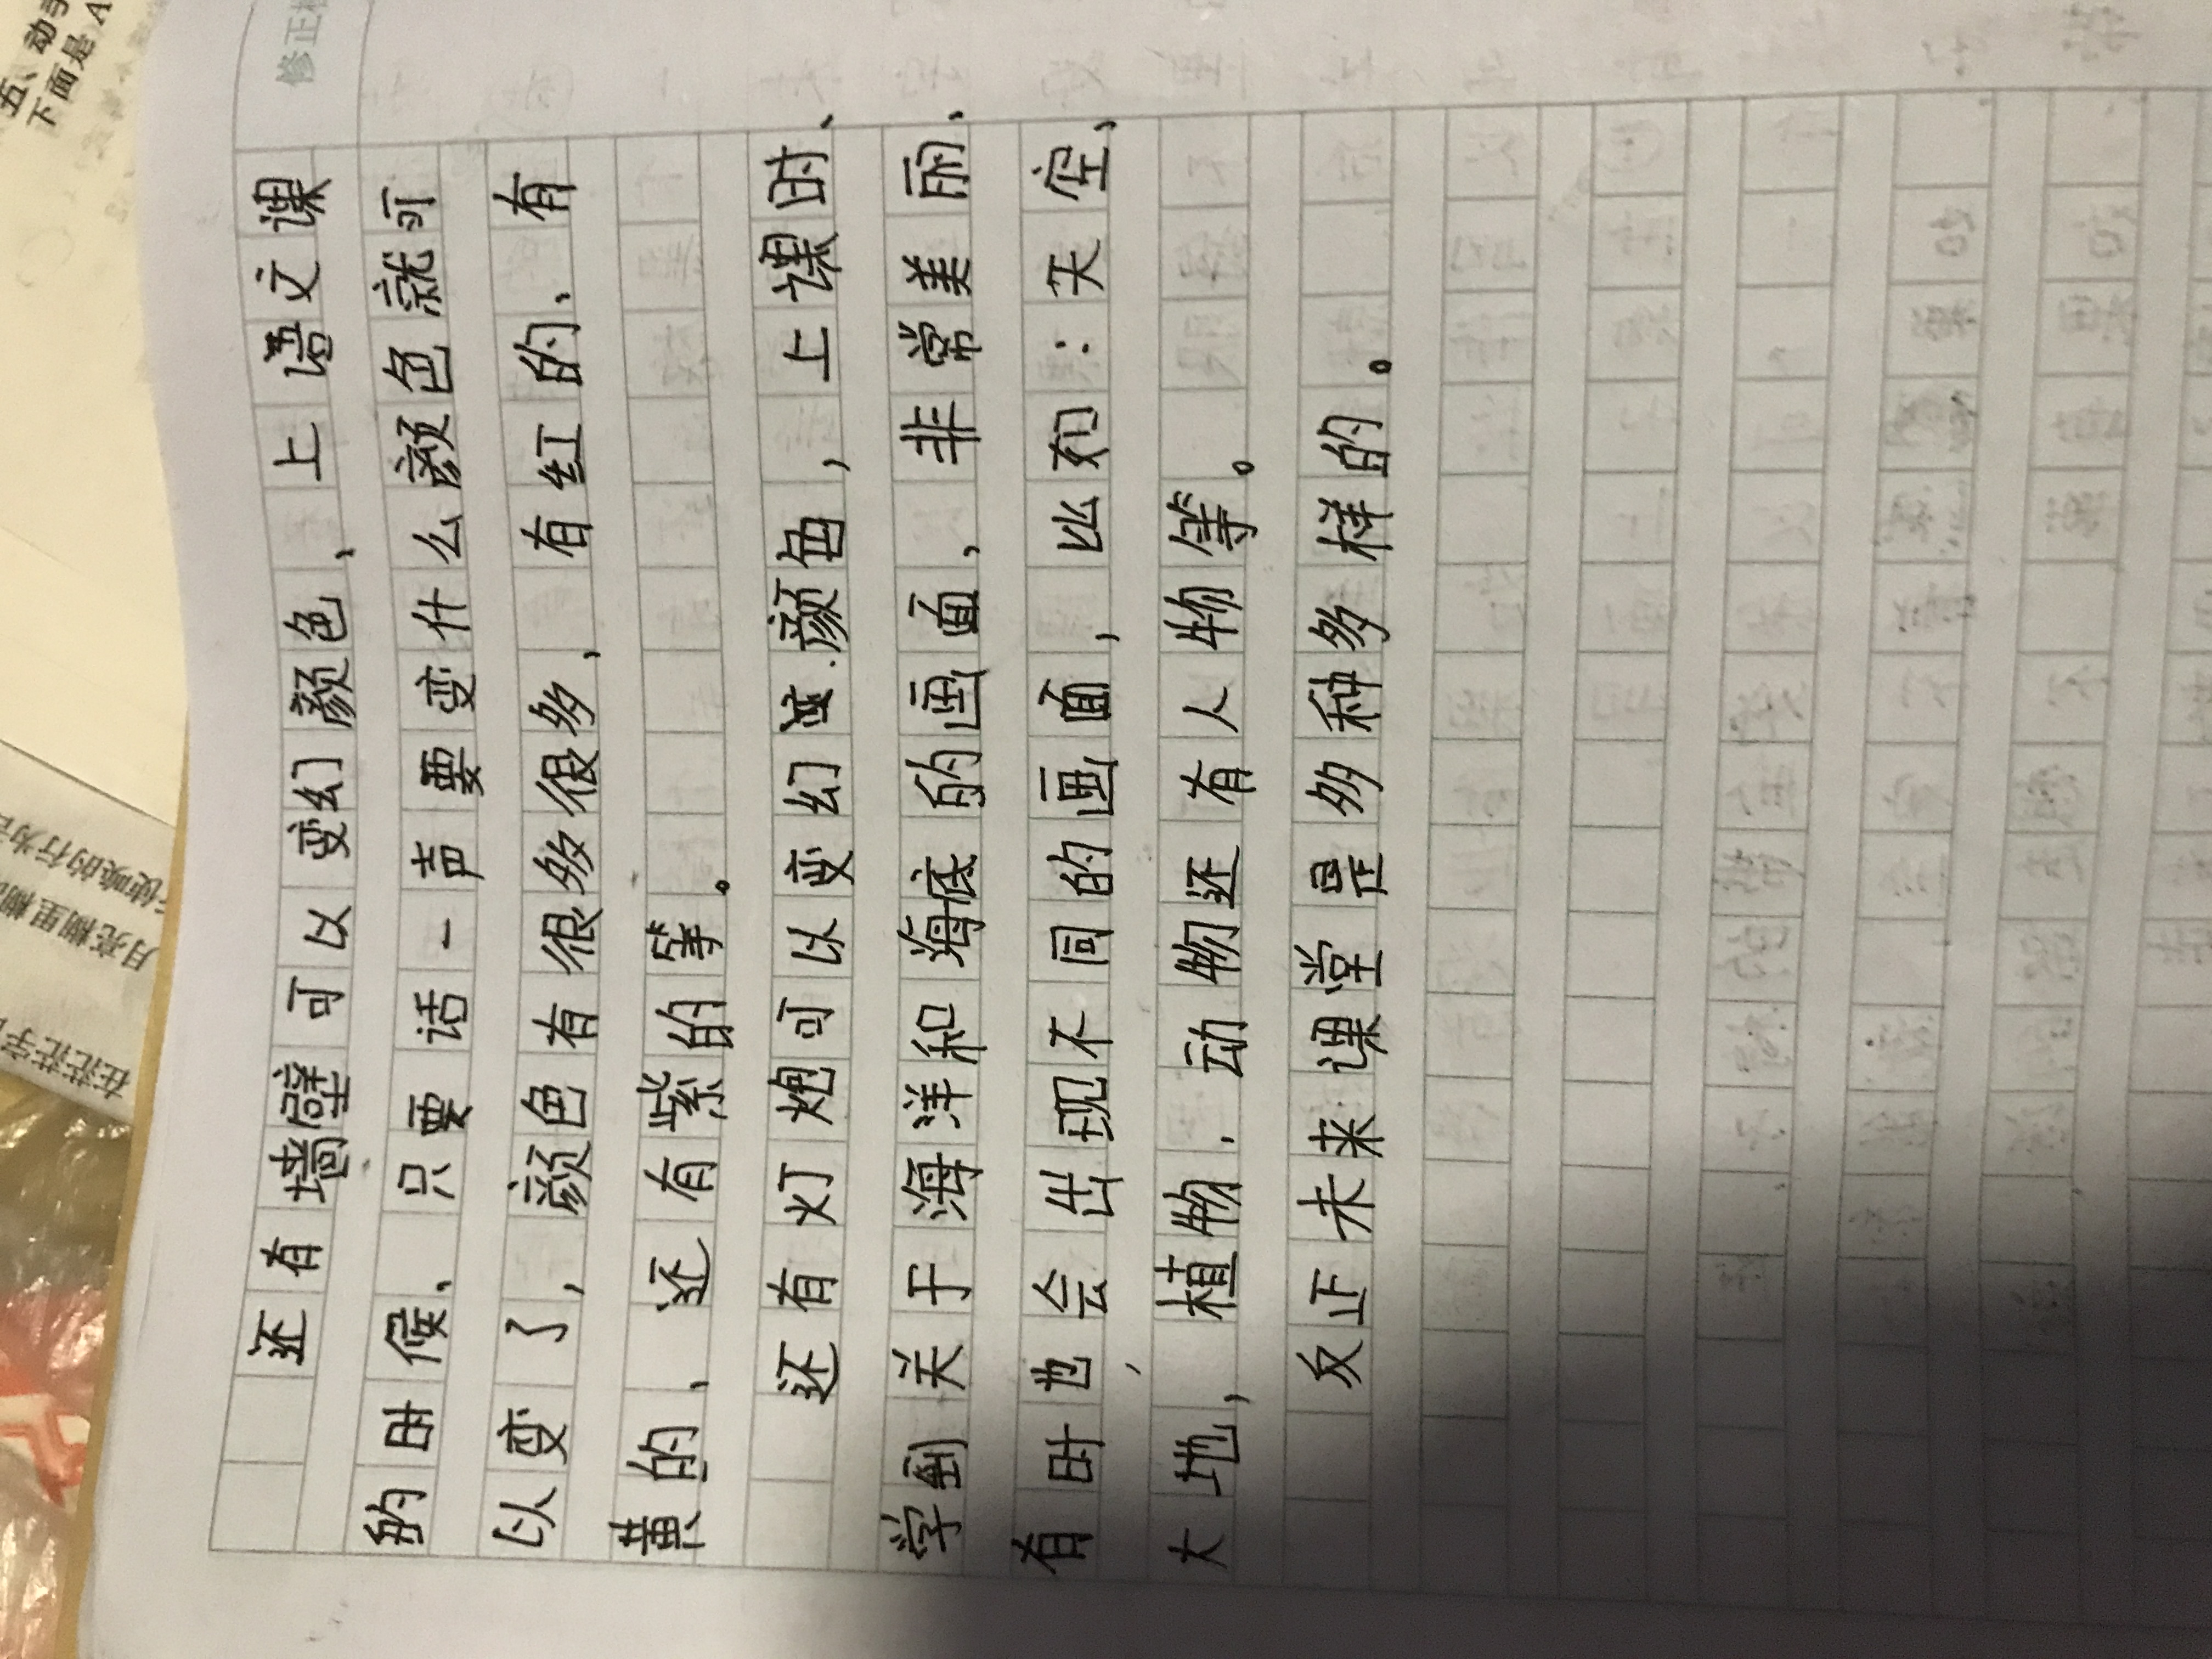 修正
五、动手
下面是A
还有墙壁可以变幻颜色、上语文课
的时候、只要话一声要变什么颜色就可
以变了，颜色有很多很多，有红的、有
黄的、还有紫的等。
还有灯炮可以变幻变颜色，上课时、
学到关于海洋和海底的画面，非常美丽、
有时也会出现不同的画面，比如：天空，
大地，植物．动物还有人物等。
反正未来课堂是多种多样的。
使唤的行为
月亮糊里糊
在茫茫宇